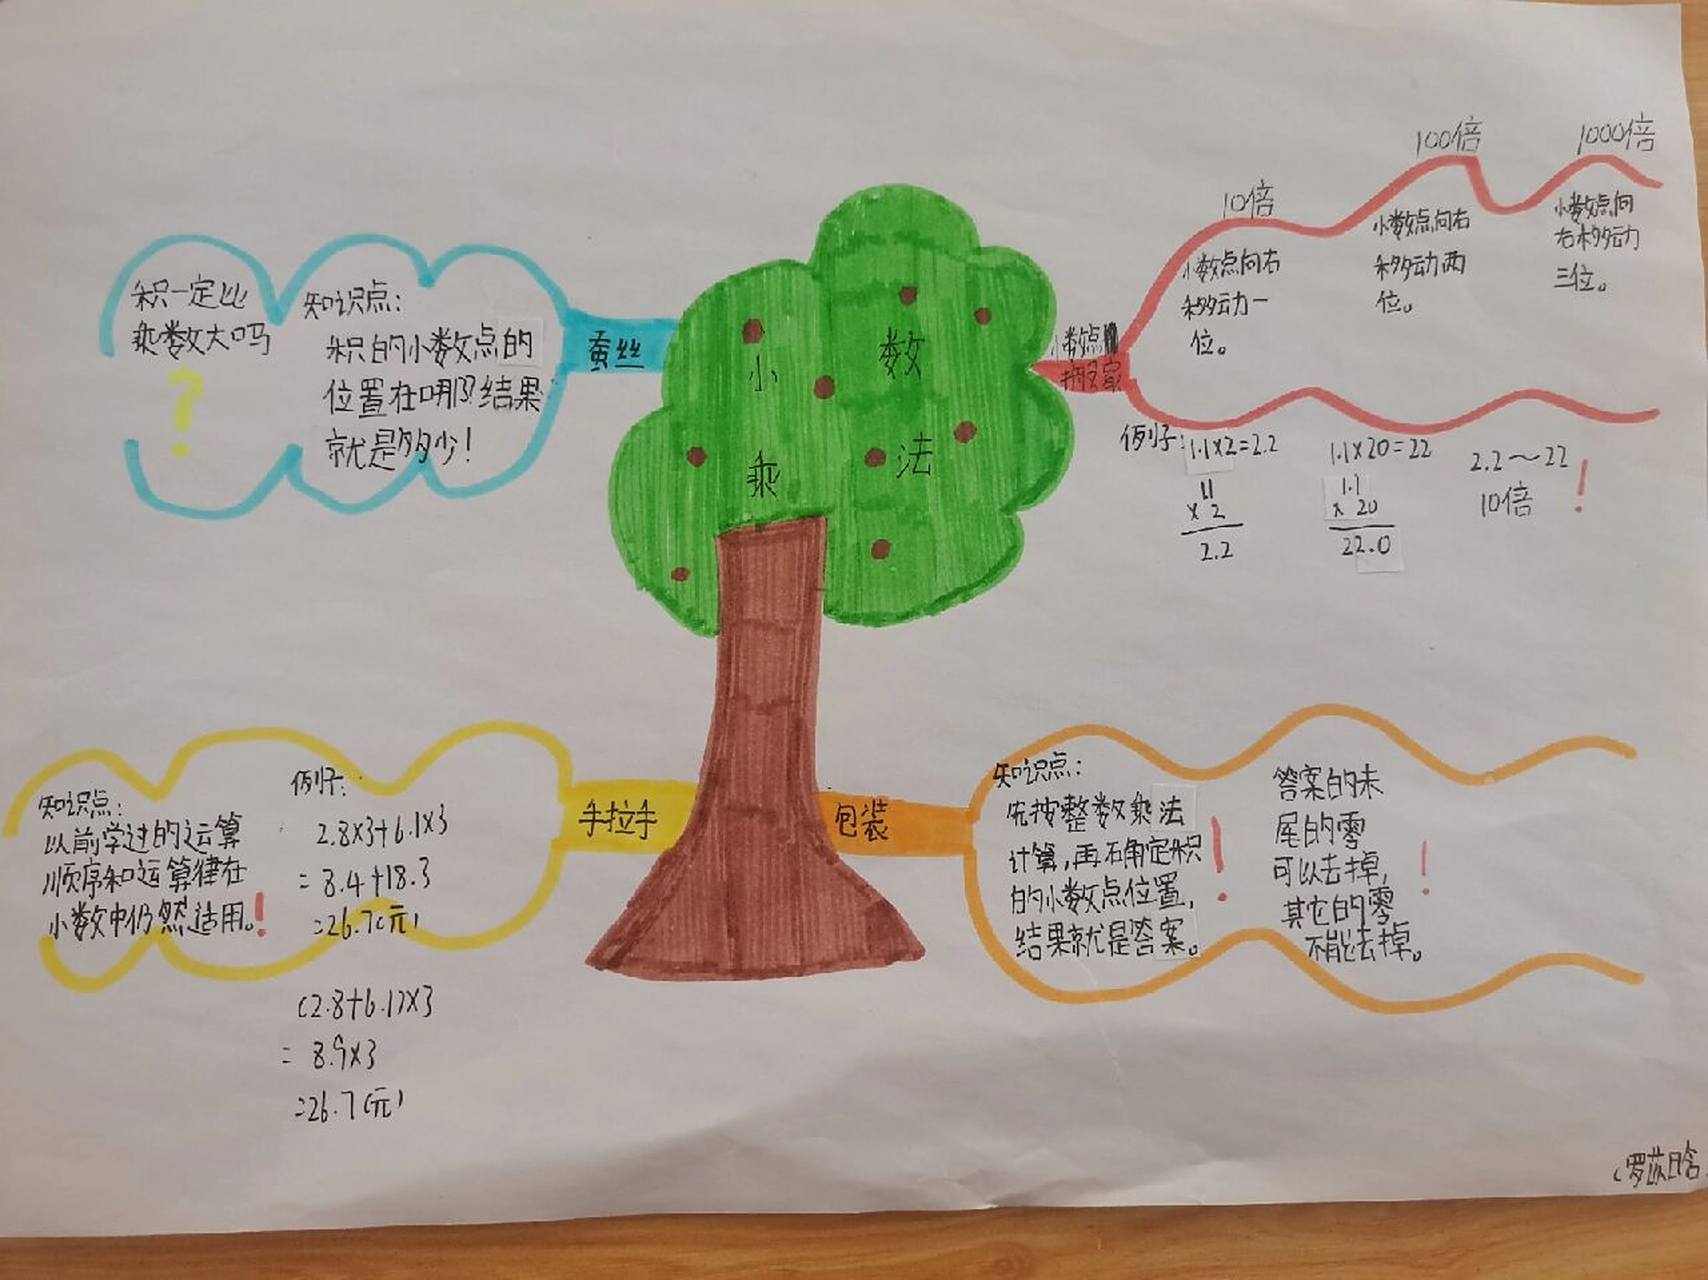 小数
乘法
蚕丝
积一定比
乘数大吗
?
知识点:
积的小数点的
位置在哪?结果
就是多少!
小数点
搬家
10倍
小数点向右
移动一
位。
100倍
小数点向右
移动两
位。
1000倍
小数点向
右移动
三位。
例子:1.1×2=2.2
11
× 2
2.2
1.1×20=22
1.1
× 20
22.0
2.2~22
10倍
!
手拉手
知识点:
以前学过的运算
顺序和运算律在
小数中仍然适用。!
例子:
2.8×3+6.1×3
=8.4+18.3
=26.7(元)
(2.8+6.1)×3
=8.9×3
=26.7(元)
包装
知识点:
先按整数乘法
计算,再确定积
的小数点位置,
结果就是答案。
!
答案的末
尾的零
可以去掉,
其它的零
不能去掉。
!